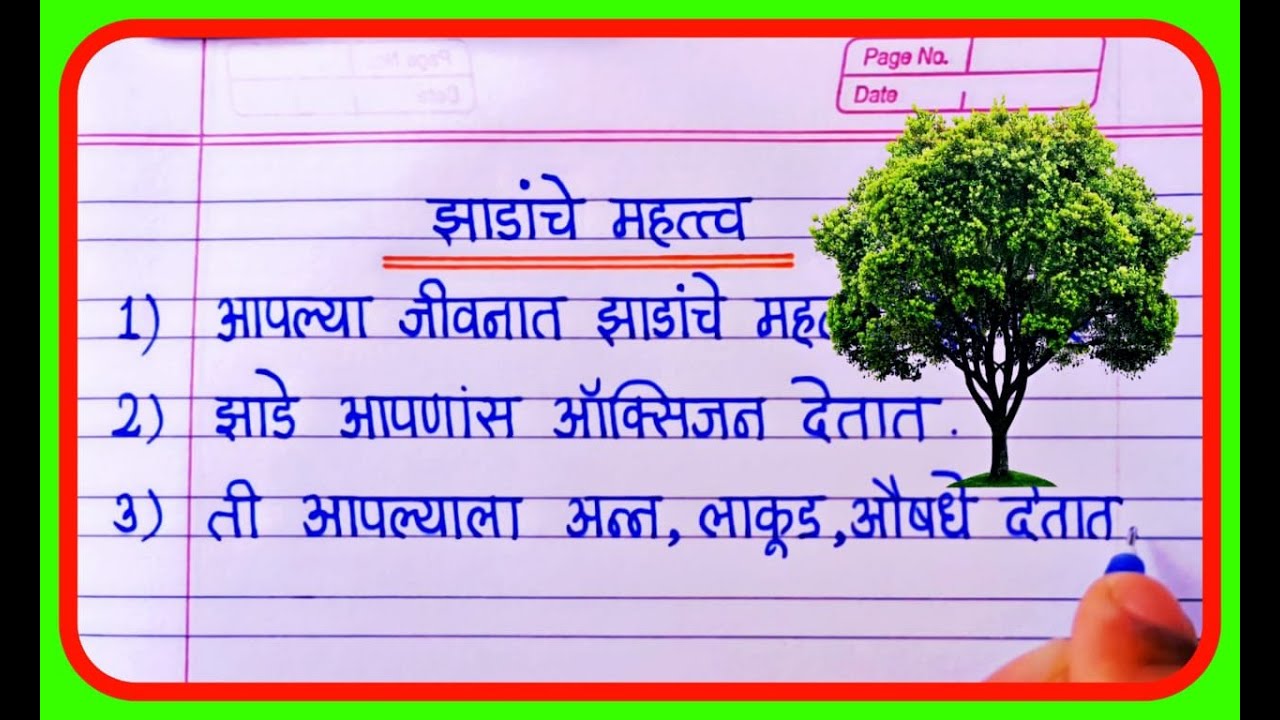 Page No.
Date
झाडांचे महत्त्व
1) आपल्या जीवनात झाडांचे
2) झाडे आपणांस ऑक्सिजन देतात.
3) ती आपल्याला अन्न, लाकूड, औषधे देतात.